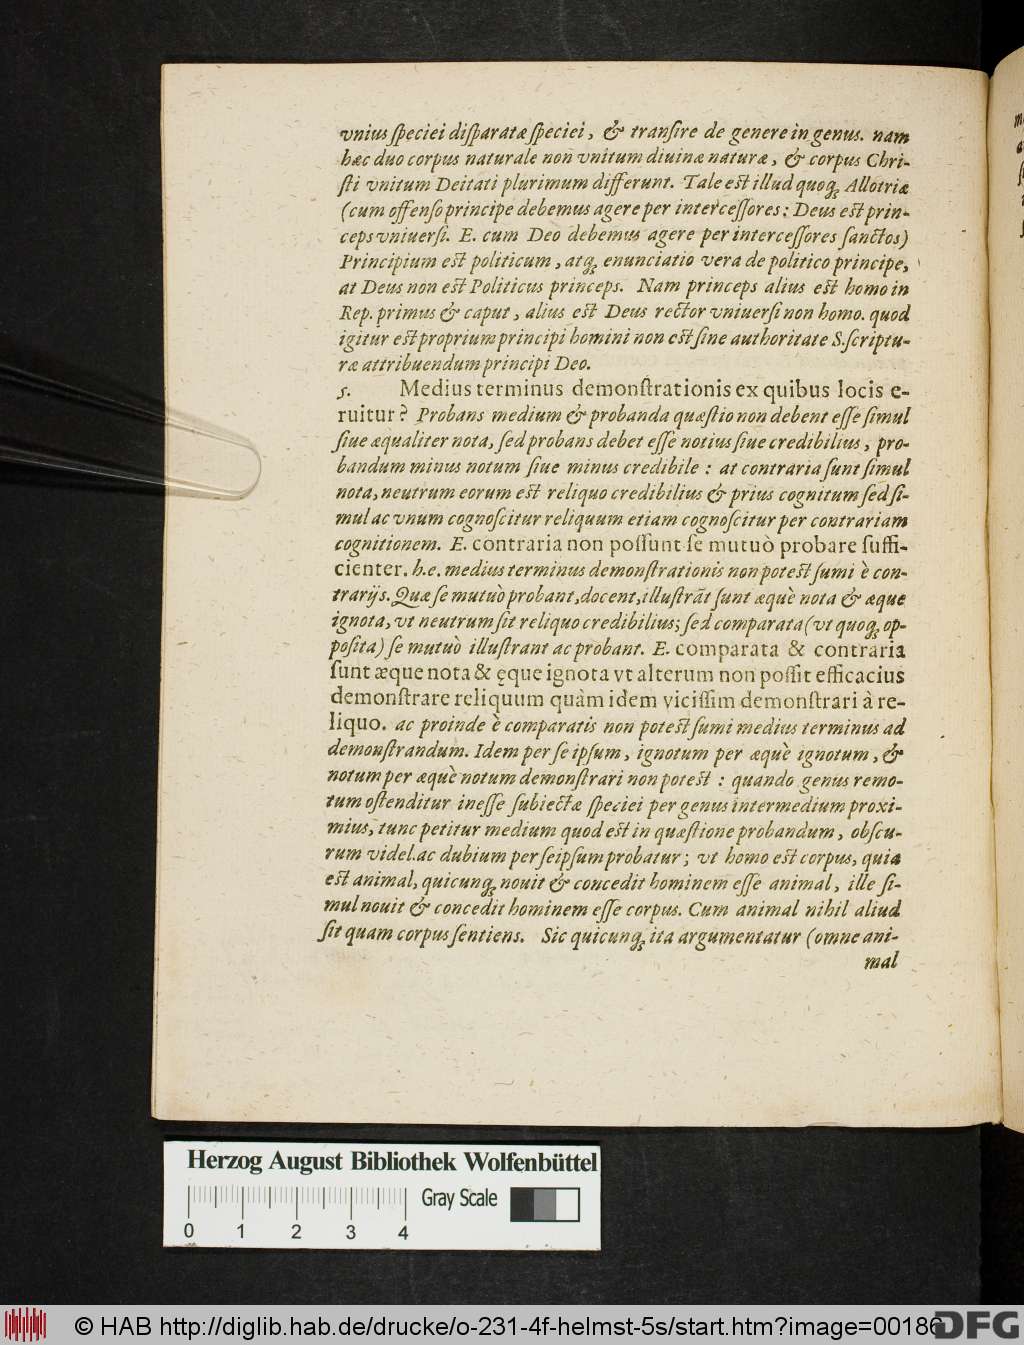 vnius ſpeciei diſparatæ ſpeciei, & tranſire de genere in genus. nam
hæc duo corpus naturale non vnitum diuinæ naturæ, & corpus Chri-
ſti vnitum Deitati plurimum differunt. Tale eſt illud quoq; Allotriæ
(cum offenſo principe debemus agere per interceſſores: Deus eſt prin-
ceps vniuerſi. E. cum Deo debemus agere per interceſſores ſanctos)
Principium eſt politicum, atq; enunciatio vera de politico principe,
at Deus non eſt Politicus princeps. Nam princeps alius eſt homo in
Rep. primus & caput, alius eſt Deus rector vniuerſi non homo. quod
igitur eſt proprium principi homini non eſt ſine authoritate S. ſcriptu-
ræ attribuendum principi Deo.
5. Medius terminus demonſtrationis ex quibus locis e-
ruitur? Probans medium & probanda quæſtio non debent eſſe ſimul
ſiue æqualiter nota, ſed probans debet eſſe notius ſiue credibilius, pro-
bandum minus notum ſiue minus credibile: at contraria ſunt ſimul
nota, neutrum eorum eſt reliquo credibilius & prius cognitum ſed ſi-
mul ac vnum cognoſcitur reliquum etiam cognoſcitur per contrariam
cognitionem. E. contraria non poſſunt ſe mutuò probare ſuffi-
cienter. h.e. medius terminus demonſtrationis non poteſt ſumi è con-
trarijs. Quæ ſe mutuò probant, docent, illuſtrāt ſunt æquè nota & æque
ignota, vt neutrum ſit reliquo credibilius; ſed comparata (vt quoq; op-
poſita) ſe mutuò illuſtrant ac probant. E. comparata & contraria
ſunt æque nota & ęque ignota vt alterum non poſſit efficacius
demonſtrare reliquum quàm idem viciſſim demonſtrari à re-
liquo. ac proinde è comparatis non poteſt ſumi medius terminus ad
demonſtrandum. Idem per ſe ipſum, ignotum per æquè ignotum, &
notum per æquè notum demonſtrari non poteſt: quando genus remo-
tum oſtenditur ineſſe ſubiectæ ſpeciei per genus intermedium proxi-
mius, tunc petitur medium quod eſt in quæſtione probandum, obſcu-
rum videl. ac dubium per ſeipſum probatur; vt homo eſt corpus, quia
eſt animal, quicunq; nouit & concedit hominem eſſe animal, ille ſi-
mul nouit & concedit hominem eſſe corpus. Cum animal nihil aliud
ſit quam corpus ſentiens. Sic quicunq; ita argumentatur (omne ani-
mal
Herzog August Bibliothek Wolfenbüttel
Gray Scale
0 1 2 3 4
© HAB http://diglib.hab.de/drucke/o-231-4f-helmst-5s/start.htm?image=00186
DFG